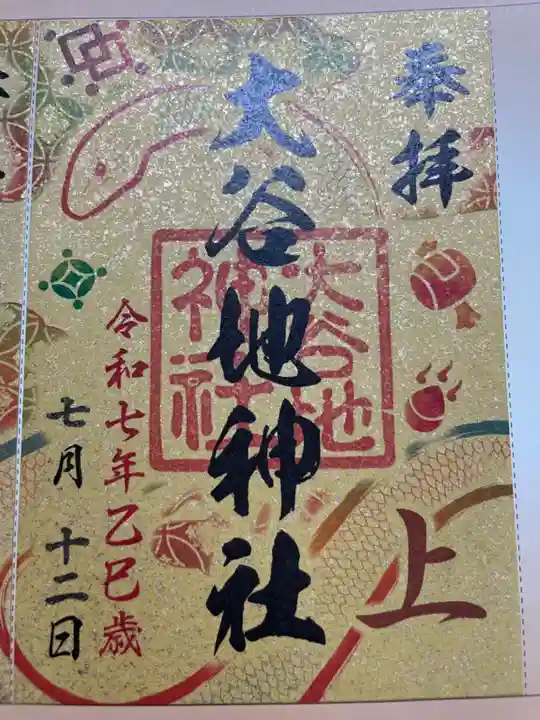 奉拝
上
大谷地神社
大谷地
神社
令和七年乙巳歳
七月十二日